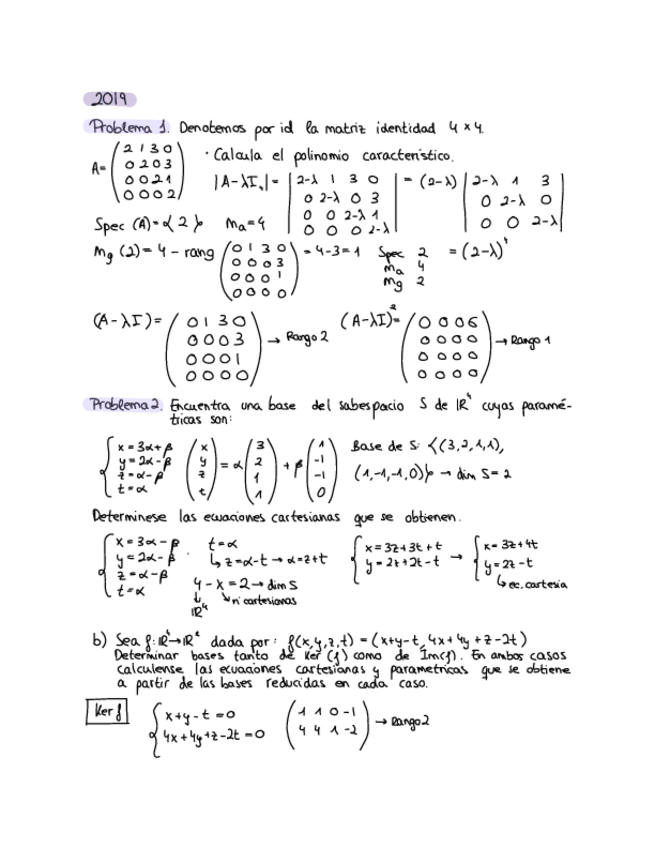 2019
Problema 1. Denotemos por id la matriz identidad 4 x 4.
A= (2 1 3 0 / 0 2 0 3 / 0 0 2 1 / 0 0 0 2) · Calcula el polinomio característico.
|A-λI₄| = |2-λ 1 3 0 / 0 2-λ 0 3 / 0 0 2-λ 1 / 0 0 0 2-λ| = (2-λ) |2-λ 1 3 / 0 2-λ 0 / 0 0 2-λ|
Spec (A)={2} Ma=4
= (2-λ)⁴
mg (2) = 4 - rang (0 1 3 0 / 0 0 0 3 / 0 0 0 1 / 0 0 0 0) = 4-3=1
Spec 2
Ma 4
Mg 2
(A-λI) = (0 1 3 0 / 0 0 0 3 / 0 0 0 1 / 0 0 0 0) → Rango 2 (A-λI)²= (0 0 0 6 / 0 0 0 0 / 0 0 0 0 / 0 0 0 0) → Rango 1
Problema 2. Encuentra una base del sabespacio S de IR⁴ cuyas paramé-
tricas son:
{x = 3α+β / y = 2α-β / z = α-β / t = α (x / y / z / t) = α (3 / 2 / 1 / 1) + β (1 / -1 / -1 / 0)
Base de S: {(3,2,1,1),
(1,-1,-1,0)} → dim S = 2
Determinese las ecuaciones cartesianas que se obtienen.
{x = 3α-β / y = 2α-β / z = α-β / t = α
t=α
↳ z=α-t → α=z+t
4 - x = 2 → dim S
↓ ↘ nº cartesianas
IR⁴
{x = 3z+3t+t / y = 2t+2t-t → {x = 3z+4t / y = 2z-t
↳ ec. cartesia
b) Sea f: IR⁴→IR² dada por: f(x,y,z,t) = (x+y-t, 4x+4y+z-2t)
Determinar bases tanto de Ker(f) como de Im(f). En ambos casos
calculense las ecuaciones cartesianas y parametricas que se obtiene
a partir de las bases reducidas en cada caso.
Ker f {x+y-t=0 / 4x+4y+z-2t=0 (1 1 0 -1 / 4 4 1 -2) → Rango 2